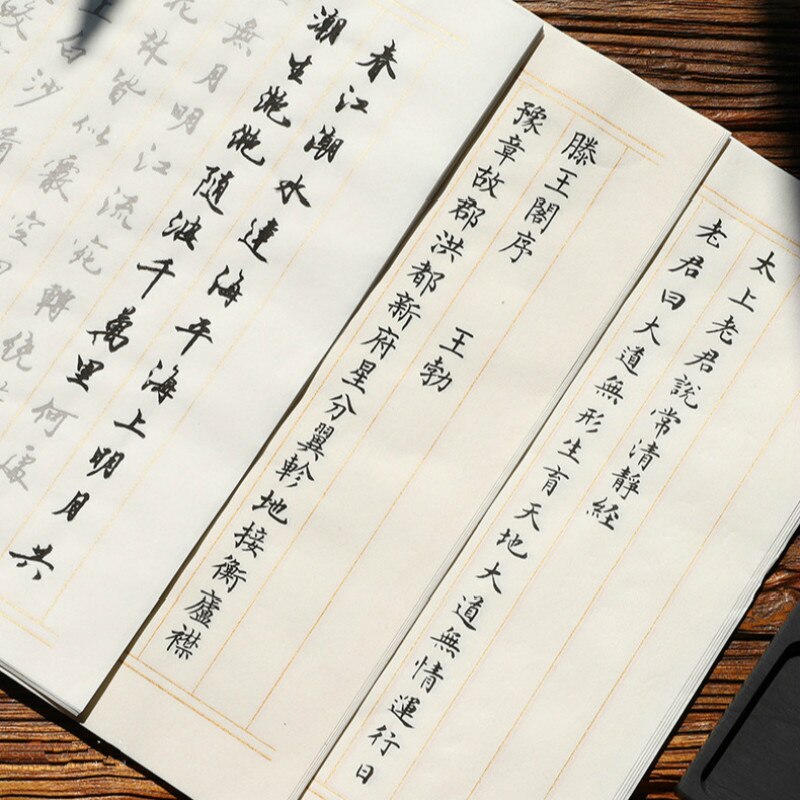 太上老君說常清靜經
老君曰大道無形生育天地大道無情運行日
滕王閣序 王勃
豫章故郡洪都新府星分翼軫地接衡廬襟
春江潮水連海平海上明月共
潮生灧灧隨波千萬里何處
無月明江流宛轉繞
花林皆似霰空
上白沙看
皎